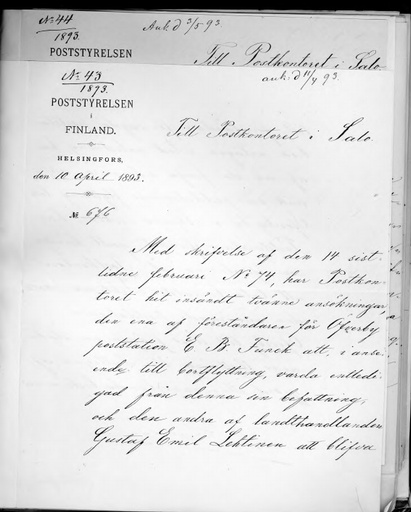 No 44
1893.
Ank d. 3/5 93
POSTSTYRELSEN
Till Postkontoret i Salo
ank. d 11/4 93.
No 43
1893.
POSTSTYRELSEN
i
FINLAND.
HELSINGFORS,
den 10 April 1893.
Till Postkontoret i Salo
No 676
Med skrifvelse af den 14 sist-
lidne februari No 74, har Postkon-
toret hit insändt tvänne ansökningar,
den ena af föreståndaren för Öfverby
poststation E. B. Tunck att, i anse-
ende till bortflyttning, varda entledi-
gad från denna sin befattning,
och den andra af landthandlanden
Gustaf Emil Lehtinen att blifva